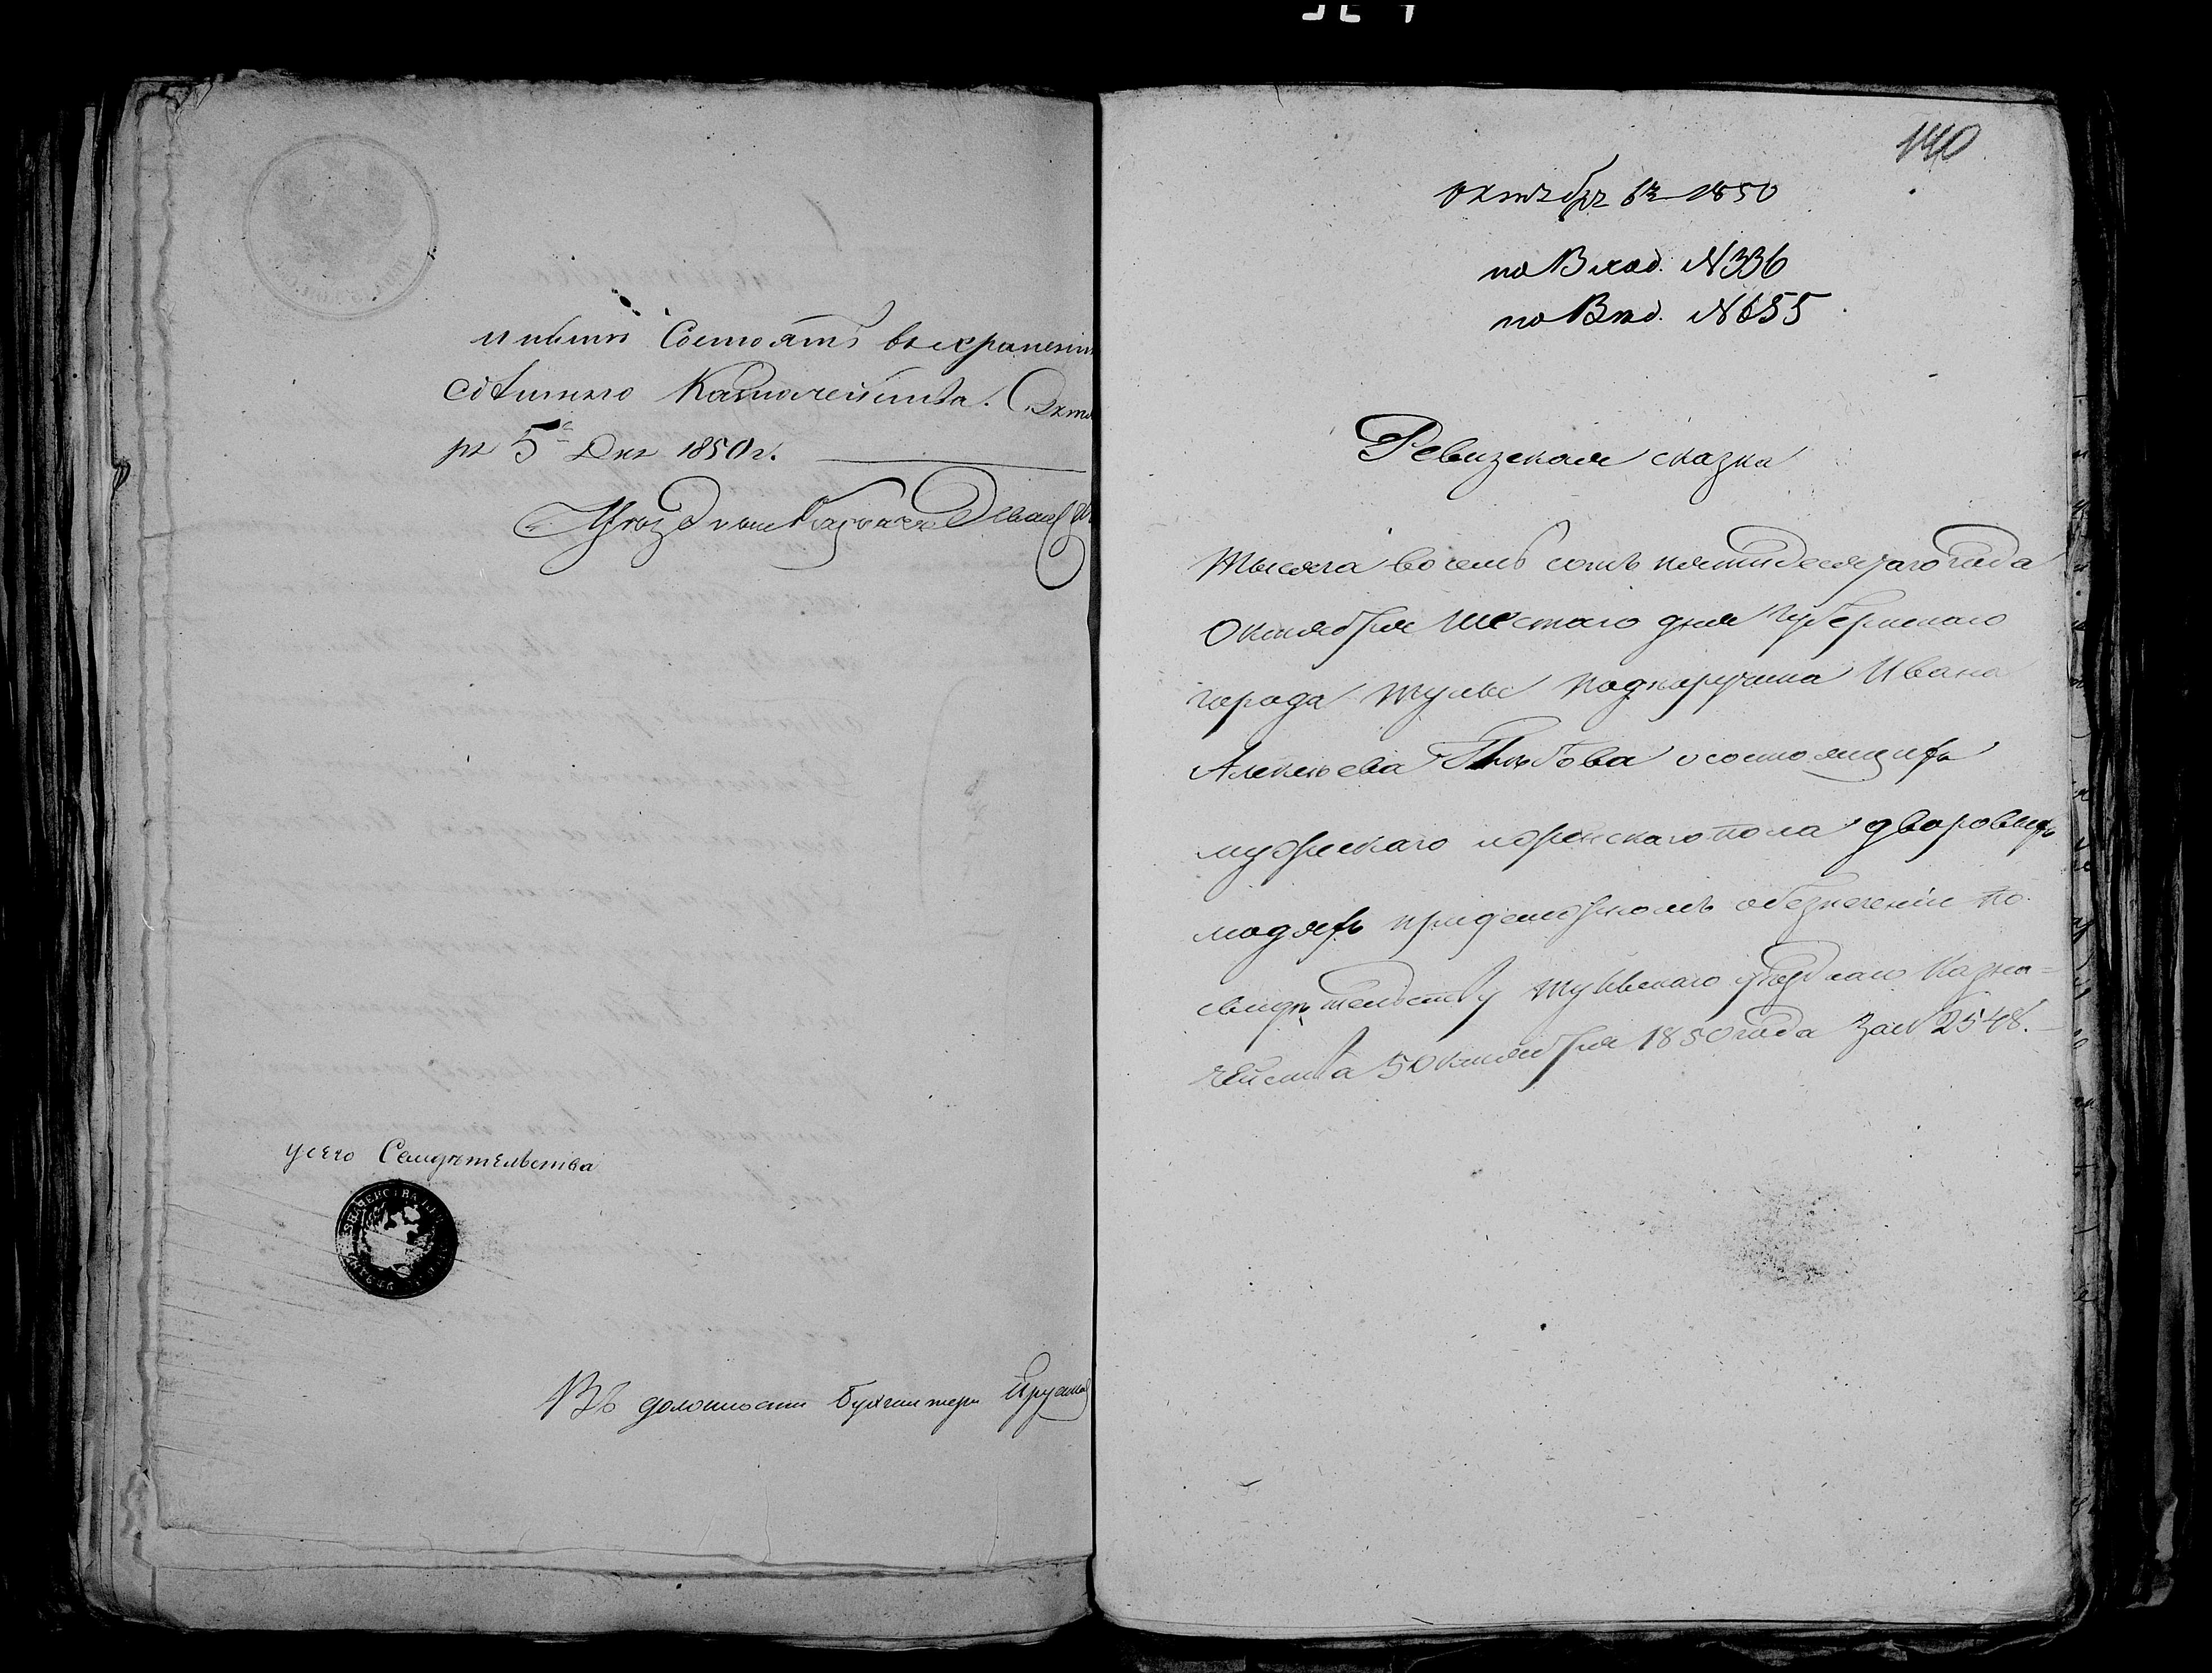 Состоятъ въ хранении
Казначейства. Октя
ря 5го Дня 1850 г.
Уездный Казначей
у сего Свидѣтельства
Въ должности Бухгалтера
140
Октября 6го 1850
по Вход. №336
по Вход. №655
Ревизская сказка
Тысяча восемь сотъ пятидесятаго года
Октября шестаго дня Губернскаго
города Тулы Подпоручика Ивана
Алексѣева Глѣбова о состоящихъ
мужескаго и женскаго пола дворовыхъ
людяхъ по
свидѣтельству Тульскаго уѣзднаго Казна=
чейства 5 Октября 1850 года за № 2548.